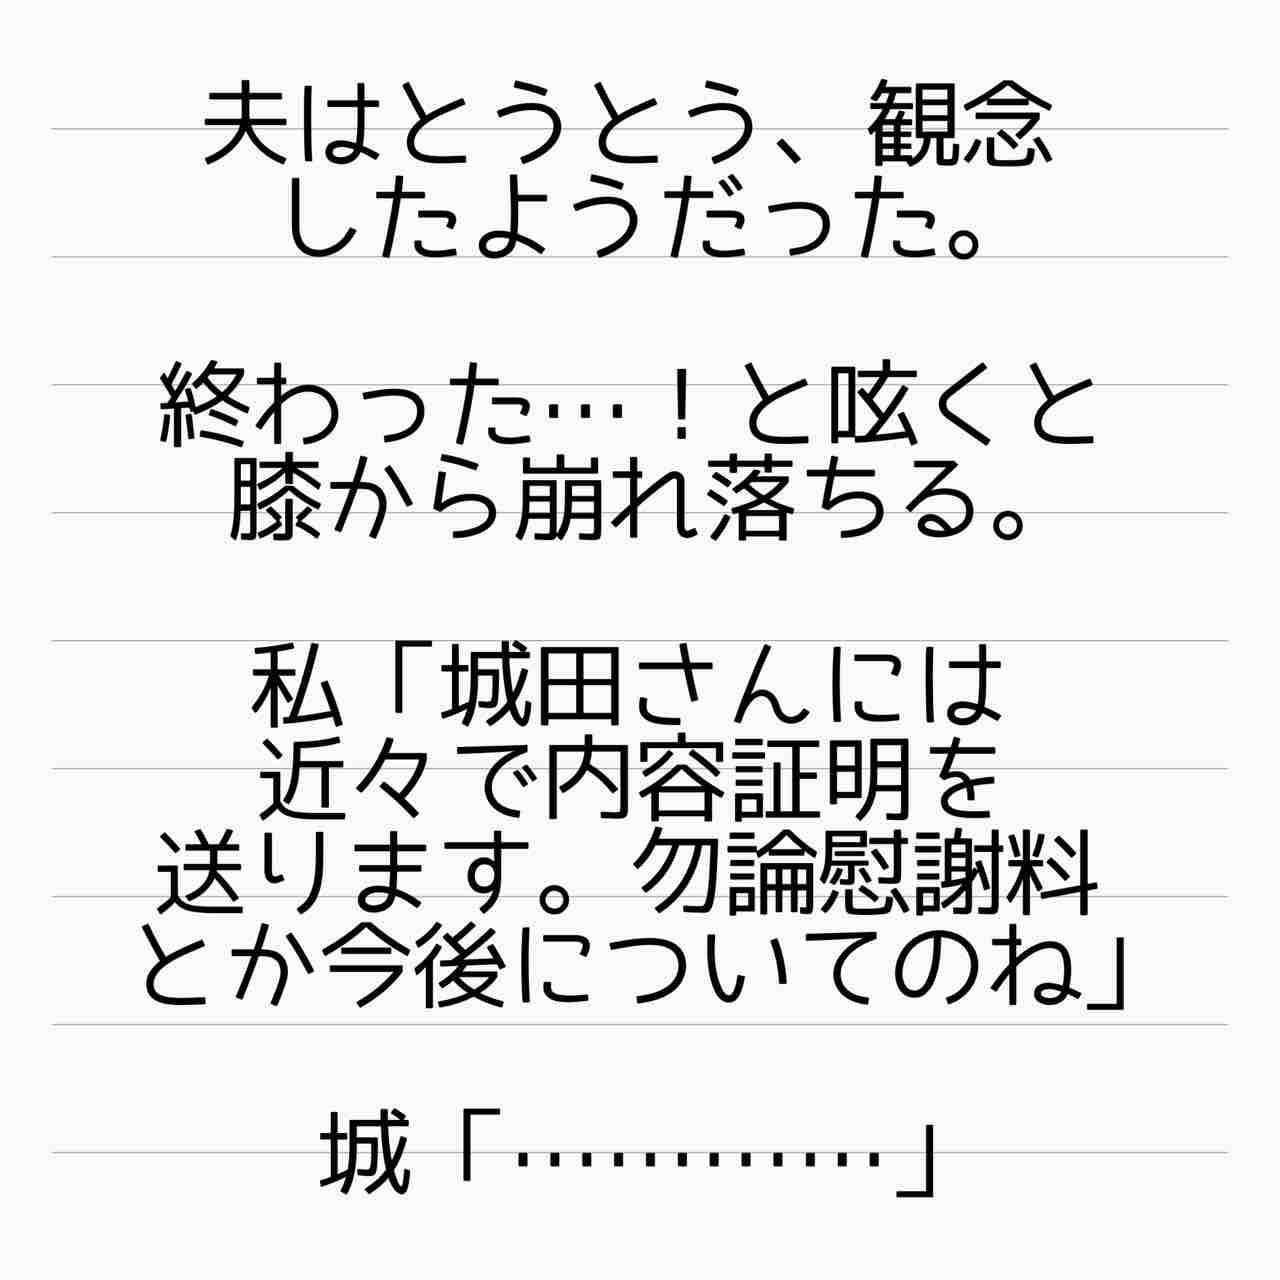 夫はとうとう、観念
したようだった。
終わった…！と呟くと
膝から崩れ落ちる。
私「城田さんには
近々で内容証明を
送ります。勿論慰謝料
とか今後についてのね」
城「…………」